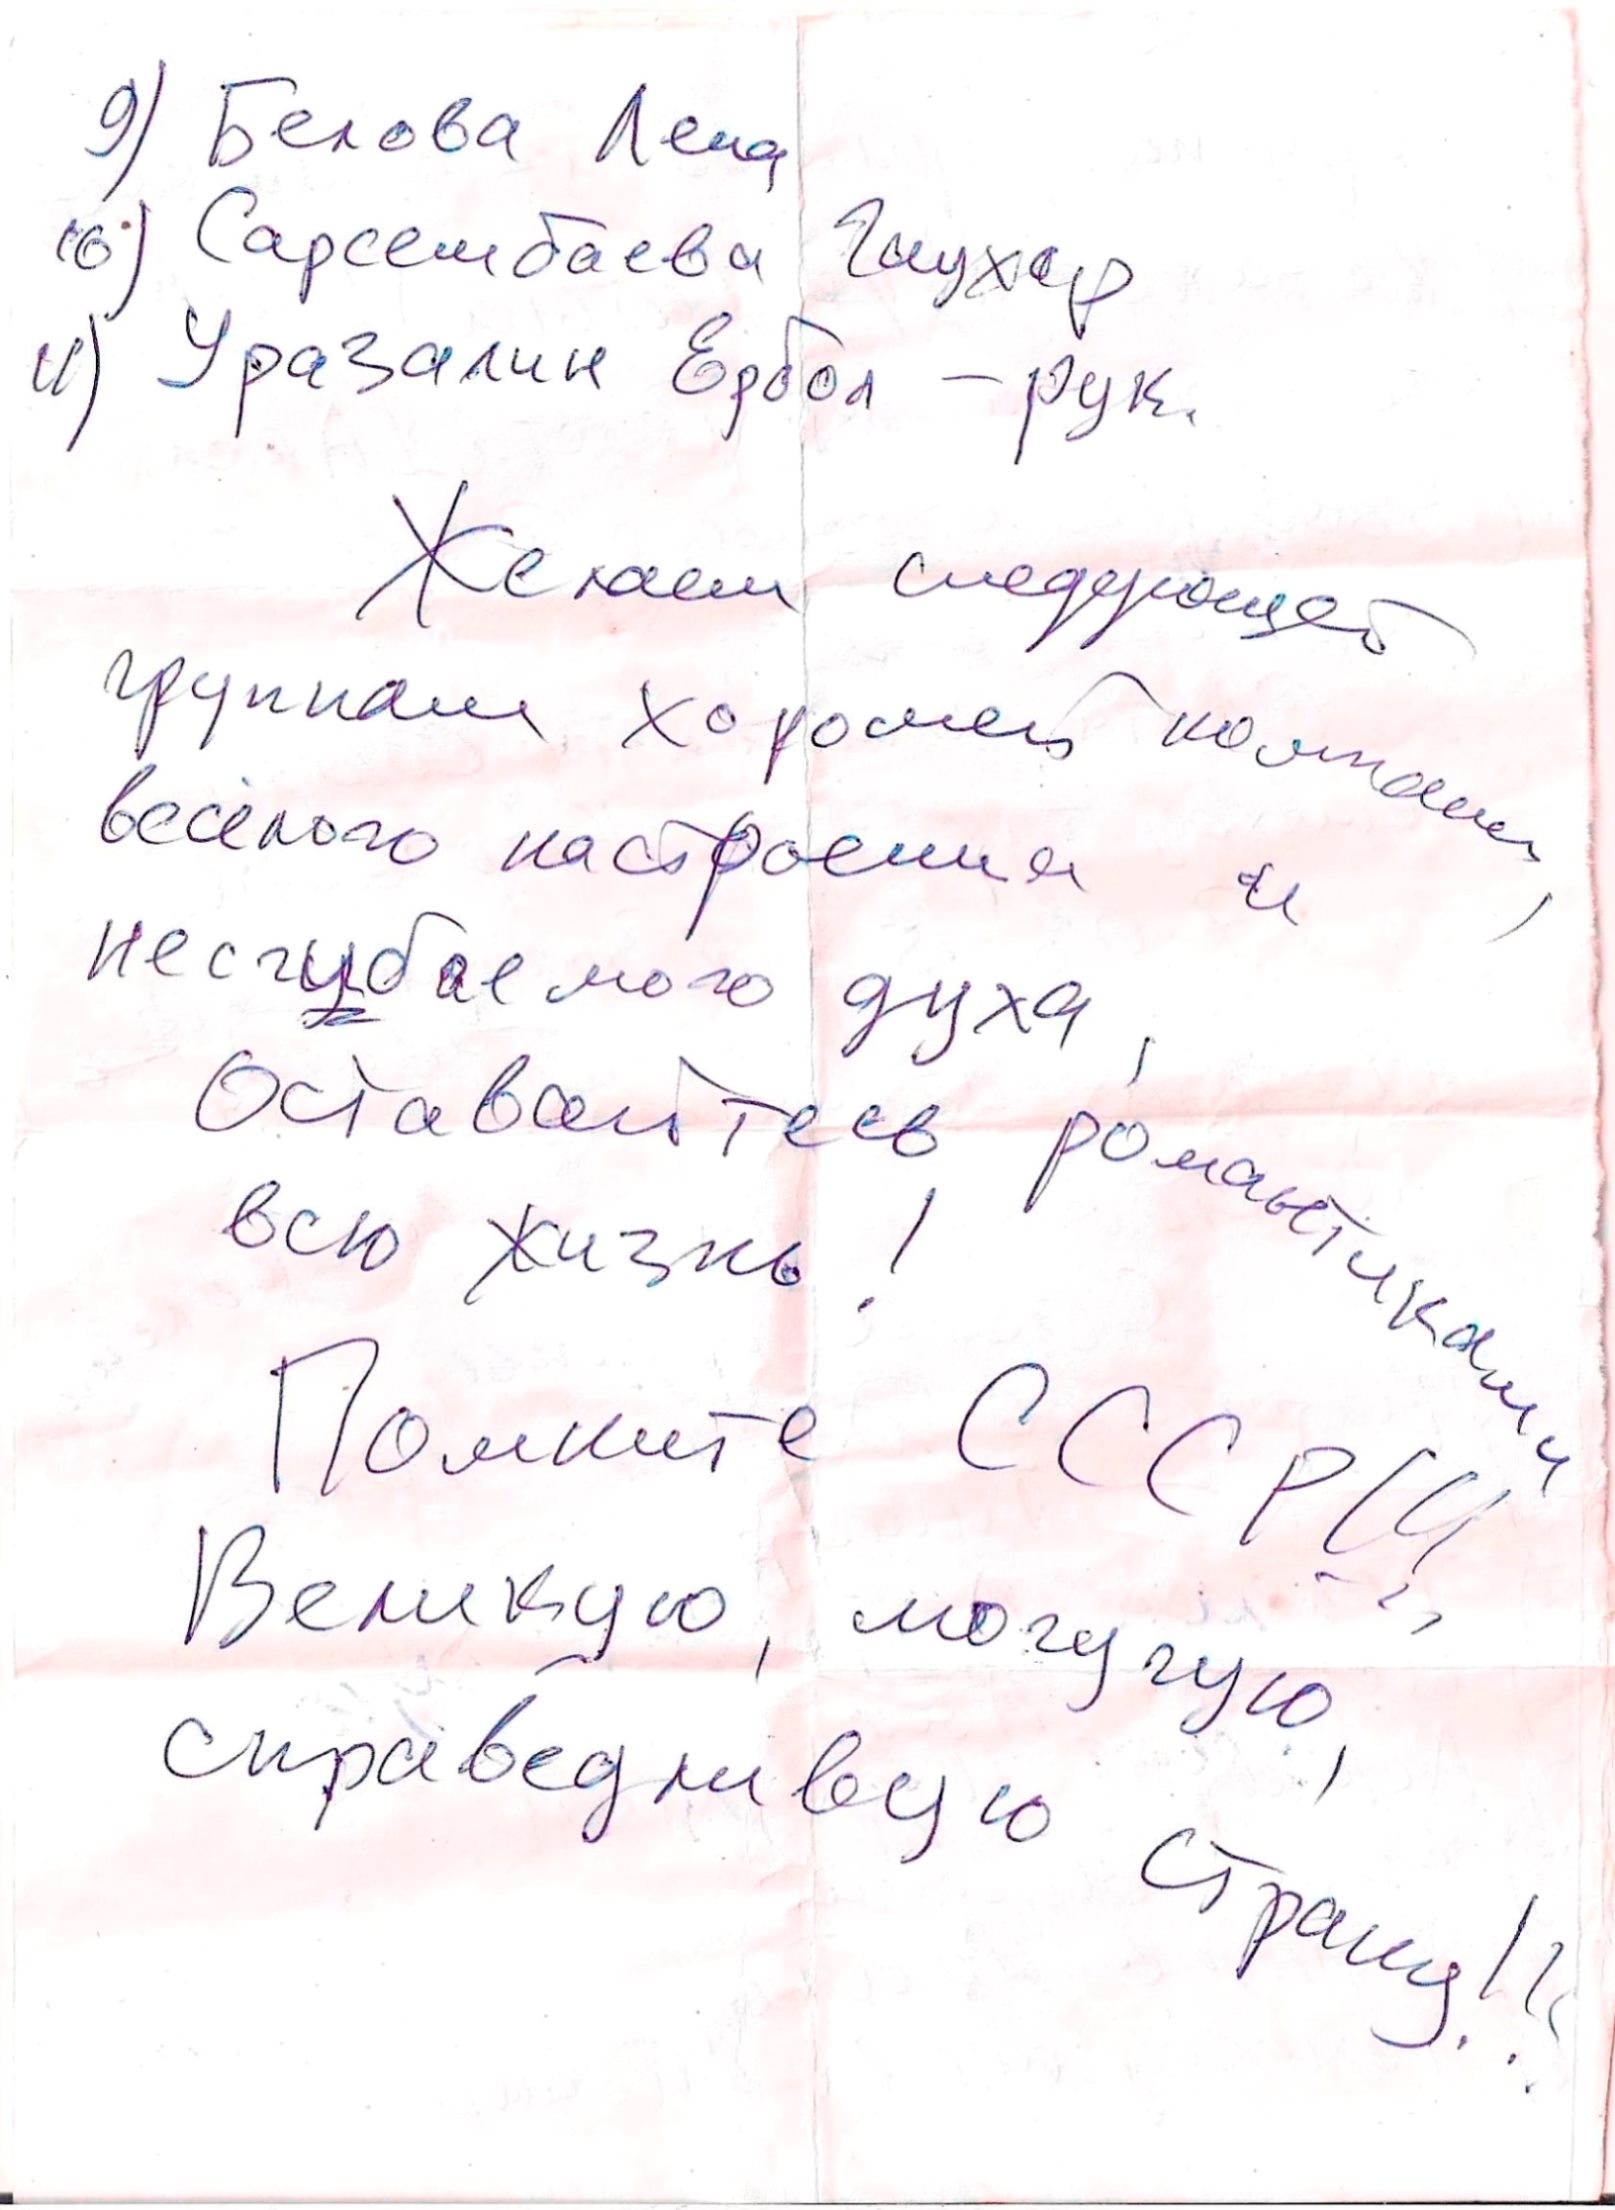 9) Белова Лена
10) Сарсембаева Гаухар
11) Уразалин Ербол – рук.
Желаем следующей
группам хорошей компании,
весёлого настроения и
несгибаемого духа,
Оставайтесь романтиками
всю жизнь!
Помните СССР!!!
Великую, могучую,
справедливую страну!!!